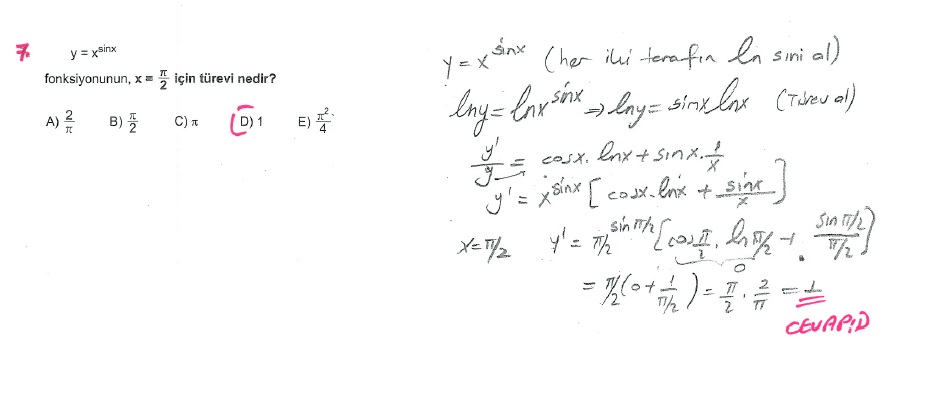 7.
y = x^sinx
fonksiyonunun, x = π/2 için türevi nedir?
A) 2/π B) π/2 C) π D) 1 E) π²/4
y = x^sinx (her iki tarafın ln sini al)
lny = lnx^sinx ⇒ lny = sinx lnx (Türev al)
y'/y = cosx. lnx + sinx. 1/x
y' = x^sinx [cosx. lnx + sinx/x]
x = π/2 y' = π/2^sin π/2 [cos π/2 . ln π/2 + sin π/2 / π/2]
0
= π/2 (0 + 1/π/2) = π/2 . 2/π = 1
CEVAP: D